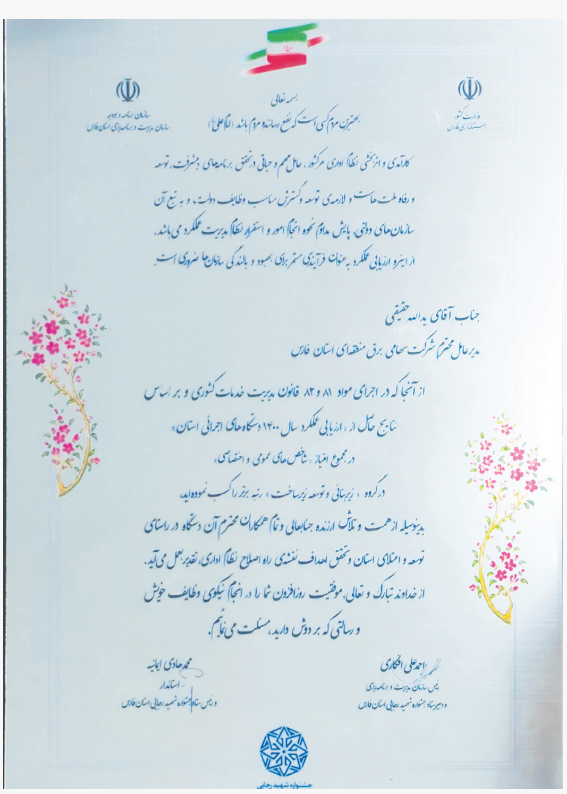 وزارت کشور
استانداری فارس
سازمان برنامه و بودجه
سازمان مدیریت و برنامه‌ریزی استان فارس
بسمه تعالی
بهترین مردم کسی است که نفع رساننده مردم باشد (امام علی ع)
کارآمدی و اثربخشی نظام اداری هر کشور، عامل مهم و حیاتی در تحقق برنامه‌های پیشرفت، توسعه
و رفاه ملت‌هاست و لازمه‌ی توسعه و گسترش مناسب وظایف دولت، و به تبع آن
سازمان‌های دولتی، پایش مداوم نحوه انجام امور و استقرار نظام مدیریت عملکرد می‌باشد.
از اینرو ارزیابی عملکرد به عنوان فرآیندی مستمر برای بهبود و بالندگی سازمان‌ها ضروری است.
جناب آقای یدالله حقیقی
مدیر عامل محترم شرکت سهامی برق منطقه‌ای استان فارس
از آنجا که در اجرای مواد ۸۱ و ۸۲ قانون مدیریت خدمات کشوری و بر اساس
نتایج حاصل از « ارزیابی عملکرد سال ۱۴۰۰ دستگاه‌های اجرائی استان»
در مجموع امتیاز « شاخص‌های عمومی و اختصاصی»
در گروه « زیربنائی و توسعه زیرساخت » رتبه برتر را کسب نموده‌اید،
بدینوسیله از همت و تلاش ارزنده جنابعالی و تمام همکاران محترم آن دستگاه در راستای
توسعه و اعتلای استان و تحقق اهداف نقشه‌ی راه اصلاح نظام اداری، تقدیر بعمل می‌آید.
از خداوند تبارک و تعالی، موفقیت روزافزون شما را در انجام نیکوی وظایف خویش
و رسالتی که بر دوش دارید، مسئلت می‌نمایم.
احمدعلی افکاری
رئیس سازمان مدیریت و برنامه‌ریزی
و دبیر ستاد جشنواره شهید رجایی استان فارس
محمدهادی ایمانیه
استاندار
و رئیس ستاد جشنواره شهید رجایی استان فارس
جشنواره شهید رجایی